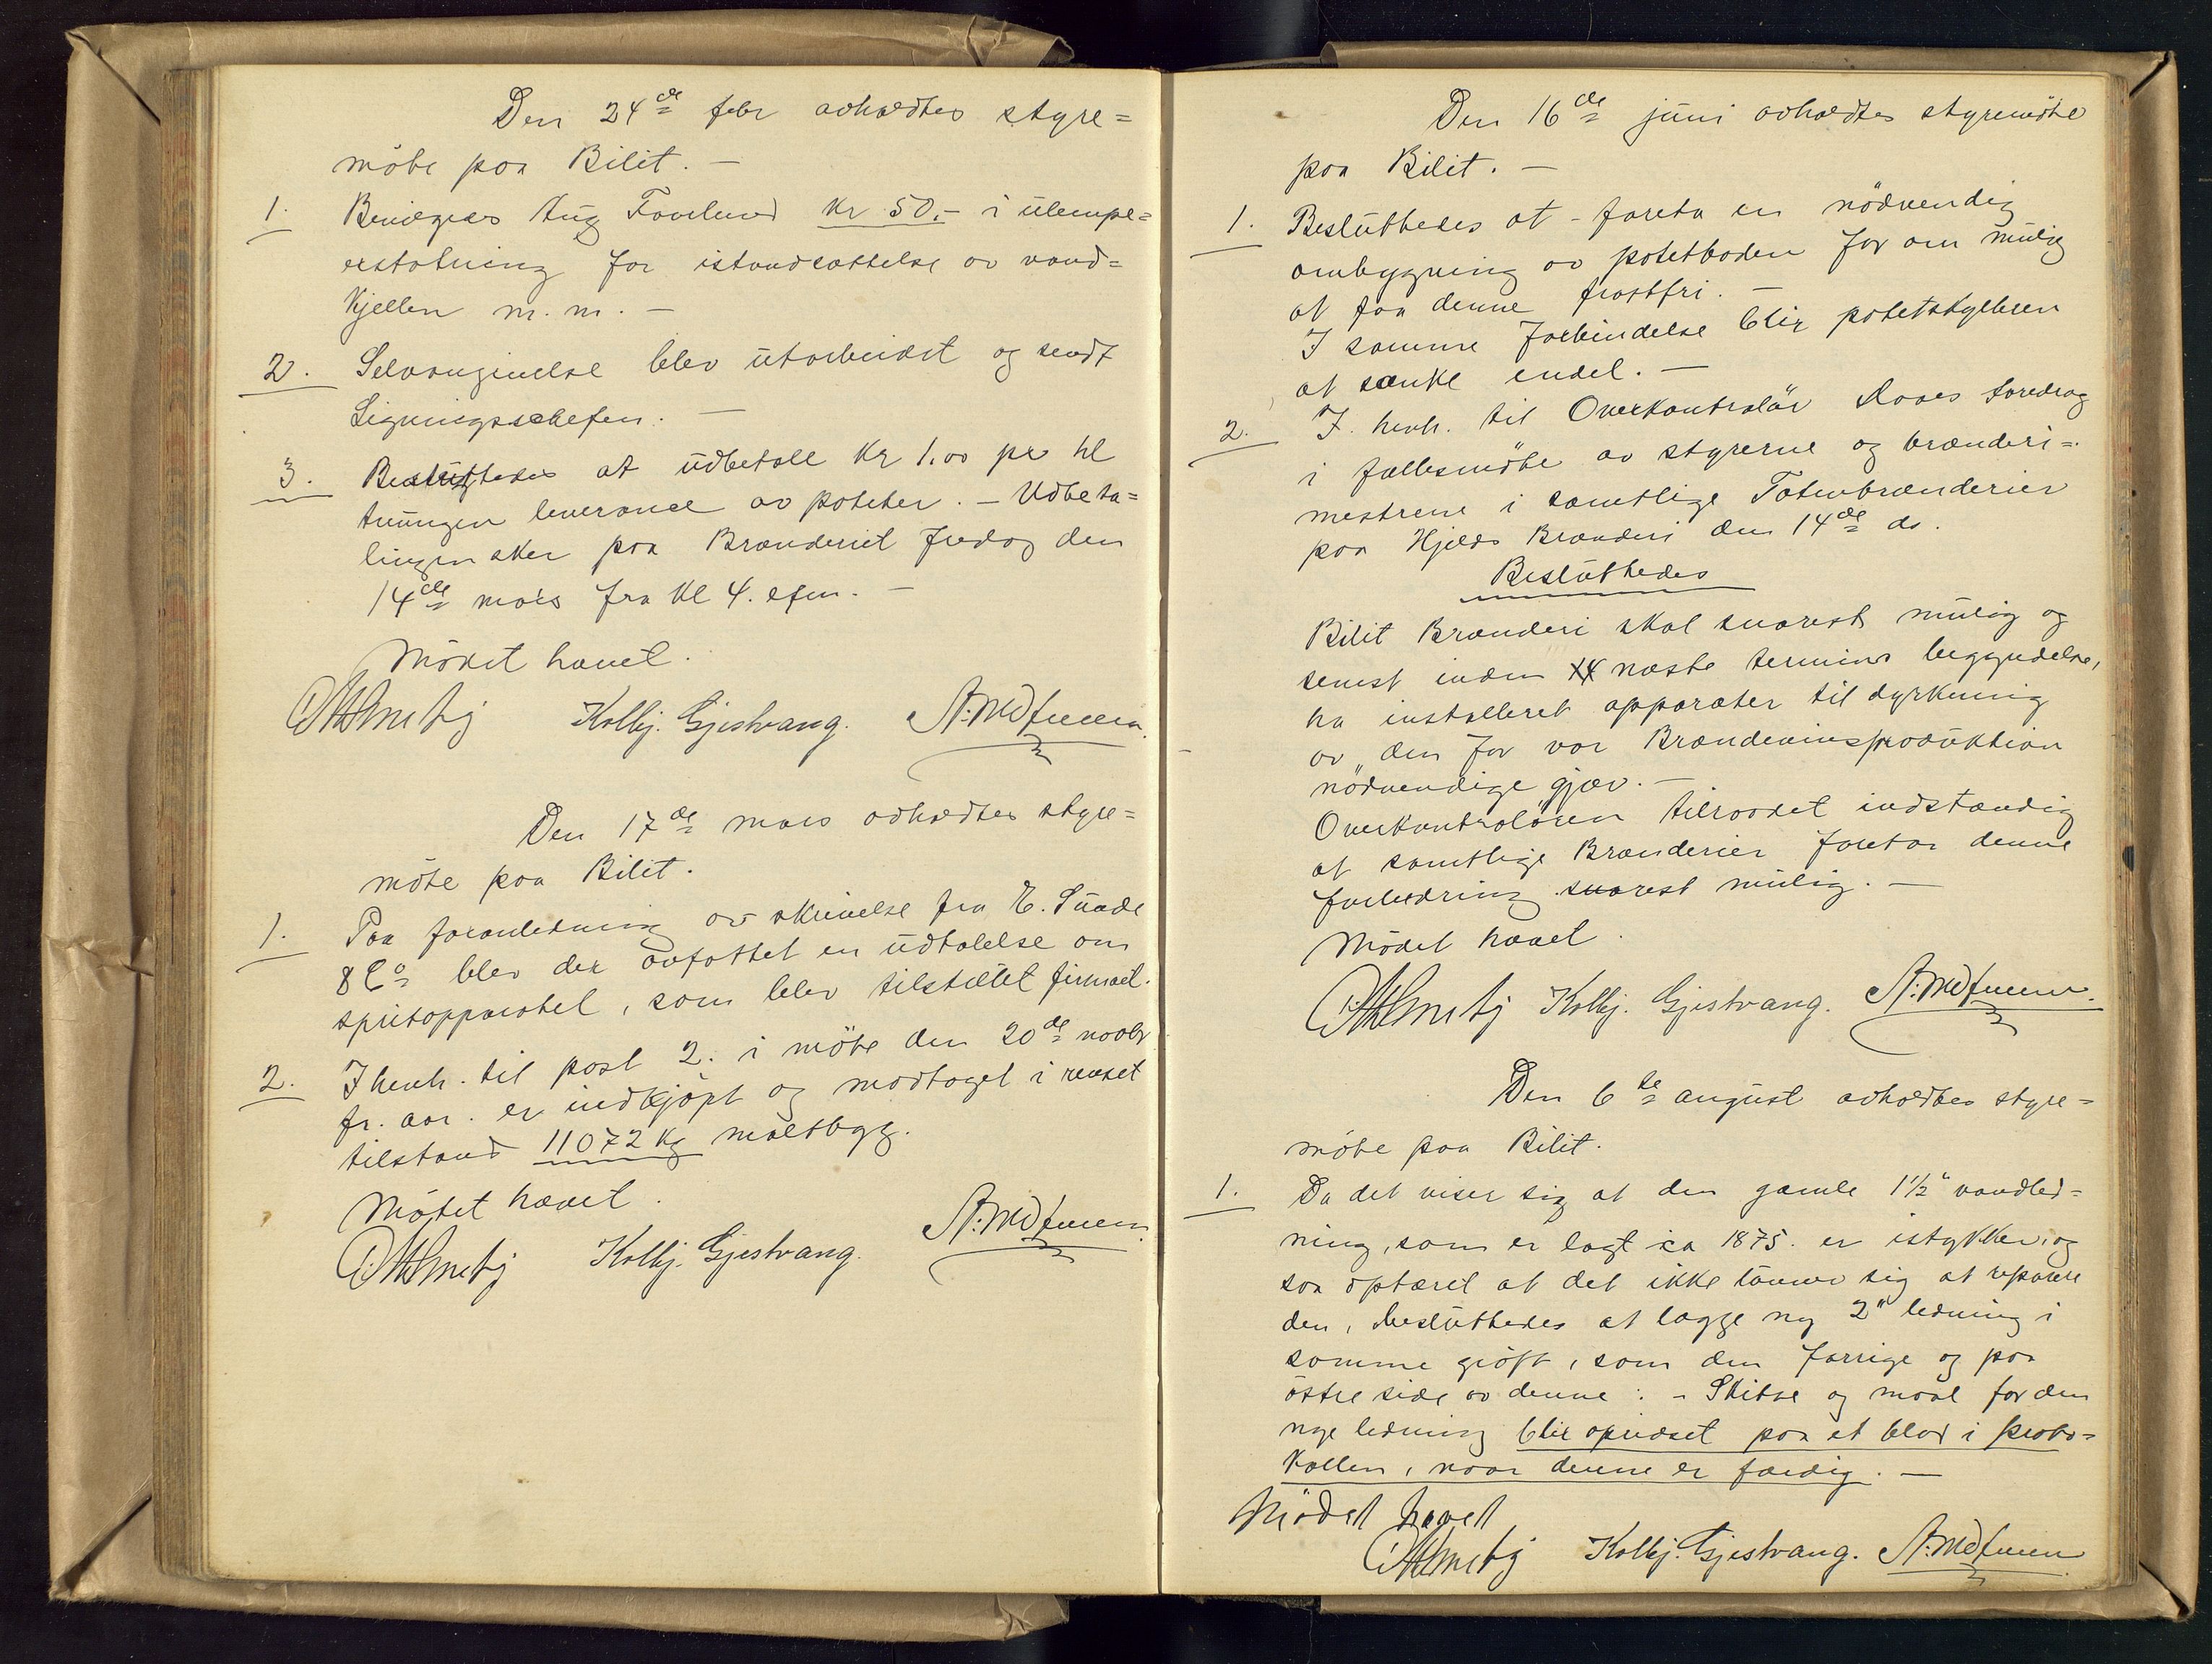 Den 24de febr avholdtes styre=
möte paa Bilit. —
1. Bevilgedes Aug kr 50.- i ulempe=
erstatning for istandsættelse av vand=
kjelken m.m. —
2. Selvangivelse blev utarbeidet og sendt
Ligningschefen. —
3. Besluttedes at udbetale kr 1.00 pr hl
tvungen leverance av poteter. — Udbeta=
lingen sker paa Brænderiet fredag den
14de mars fra kl 4. efm. —
Mödet hævet.
Kolbj. Gjestvang.
Den 17de mars avholdtes styre=
möte paa Bilit.
1. Paa foranledning av skrivelse fra E. Sunde
& Co blev der avfattet en udtalelse om
spritapparatet, som blev tilstillet firmaet.
2. I henh. til post 2. i möte den 20de novbr
fr. aar. er indkjöpt og modtaget i renset
tilstand 11072 kg maltbygg.
Mötet hævet.
Kolbj. Gjestvang.
Den 16de juni avholdtes styremöte
paa Bilit. —
1. Besluttedes at foreta en nödvendig
ombygning av potetboden for om mulig
at faa denne frostfri. —
I samme forbindelse blir potetskylleren
at sænke endel. —
2. I. henh. til Overkontrolör foredrag
i fællesmöte av styrerne og brænderi=
mestrene i samtlige Totenbrænderier
paa Hjelds Brænderi den 14de ds.
Besluttedes
Bilit Brænderi skal snarest mulig og
senest inden næste termins begyndelse,
ha installeret apparater til dyrkning
av den for vor Brændevinsproduktion
nödvendige gjær. —
Overkontrolören tilraadet indstændig
at samtlige Brænderier foretar denne
forbedring snarest mulig. —
Mödet hævet.
Kolbj. Gjestvang.
Den 6te august avholdtes styre=
möte paa Bilit.
1. Da det viser sig at den gamle 1½" vandled=
ning, som er lagt ca 1875. er istykker og
saa optæret at det ikke lönner sig at reparere
den, besluttedes at lægge ny 2" ledning i
samme gröft, som den forrige og paa
östre side av denne. - Skitse og maal for den
nye ledning blir opridset paa et blad i proto=
kollen, naar denne er færdig. —
Mödet hævet
Kolbj. Gjestvang.